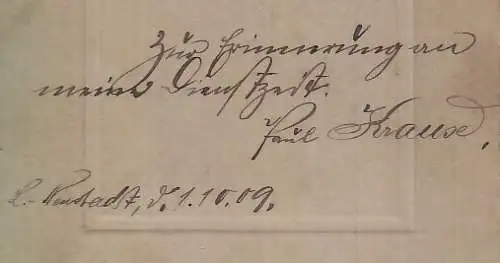 Zur Erinnerung an
meine Dienstzeit.
Paul Krause,
L.-Neustadt, d. 1.10.09.